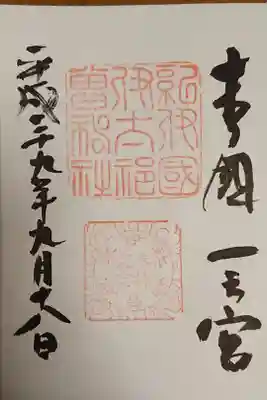 國 一之宮
紀伊國
伊太祁
曾神社
平成二九年九月十八日